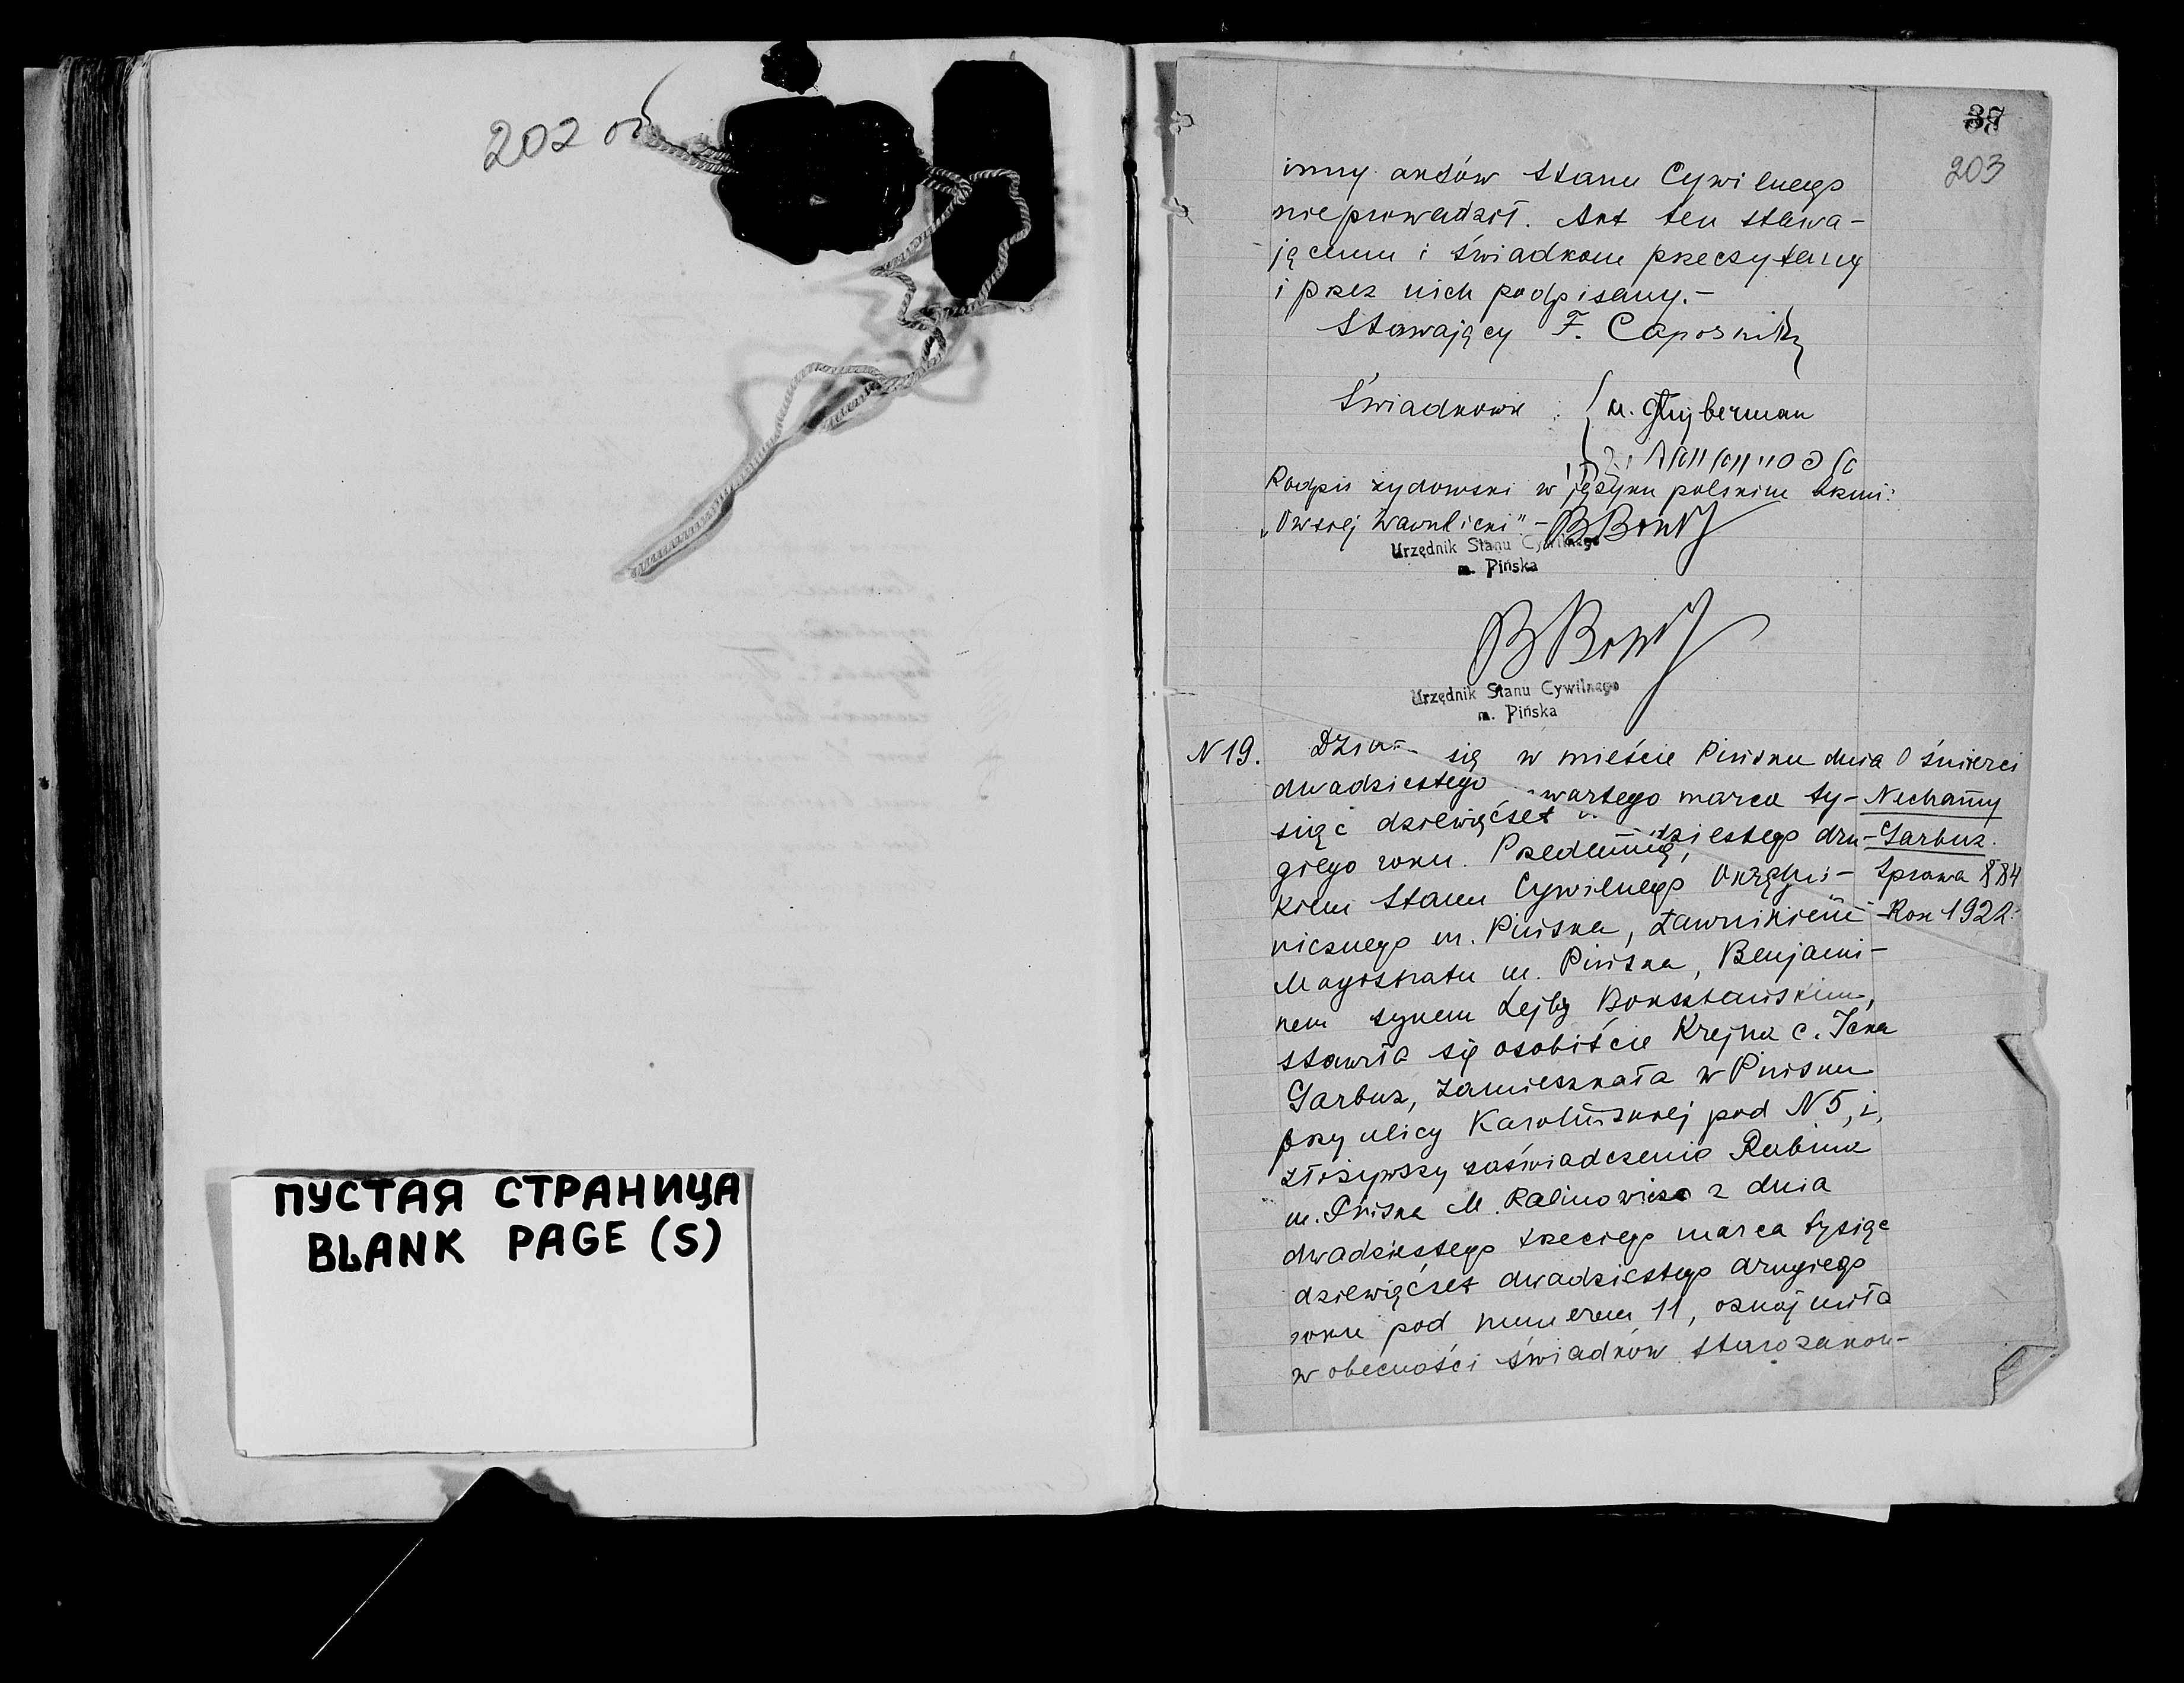 202 об
ПУСТАЯ СТРАНИЦА
BLANK PAGE (S)
37
203
inny aktów Stanu Cywilnego
nieprowadził. Akt ten stawa-
jącemu i świadkom przeczytany
i przez nich podpisany.-
Stawający F. Caposnik
Świadkowie : M. Glujberman
Podpis żydowski w języku polskim brzmi:
„Owsiej Wawnlicki" -
Urzędnik Stanu Cywilnego
m. Pińska
Urzędnik Stanu Cywilnego
m. Pińska
N 19. Dział się w mieście Pińsku dnia
dwadziestego wartego marca ty-
siąc dziewięćset dziestego dru-
giego roku. Przedemną,
kiem Stanu Cywilnego Okręgu-
nicznego m. Pińska, Ławnikiem
Magistratu m. Pińska, Benjami-
nem synem Lejby Boksztańskim,
stawiła się osobiście Krejna c. Icka
Garbuz, zamieszkała w Pińsku
przy ulicy Karolińskiej pod N 5, i,
złożywszy zaświadczenie Rabina
m. Pińska M. Ralinowicza z dnia
dwadziestego trzeciego marca tysiąc
dziewięćset dwadziestego drugiego
roku pod numerem 11, oznajmiła
w obecności świadków starozakon-
O śmierci
Nechamy
Garbuz.
Sprawa 884
Rok 1922.